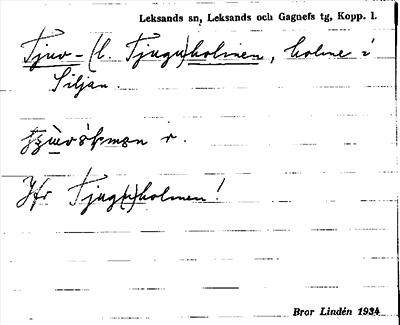 Leksands sn, Leksands och Gagnefs tg, Kopp. l.
Tjuv- (l. Tjugu)holmen, holme i
Siljan.
i r.
Jfr Tjug(u)holmen!
Bror Lindén 1934